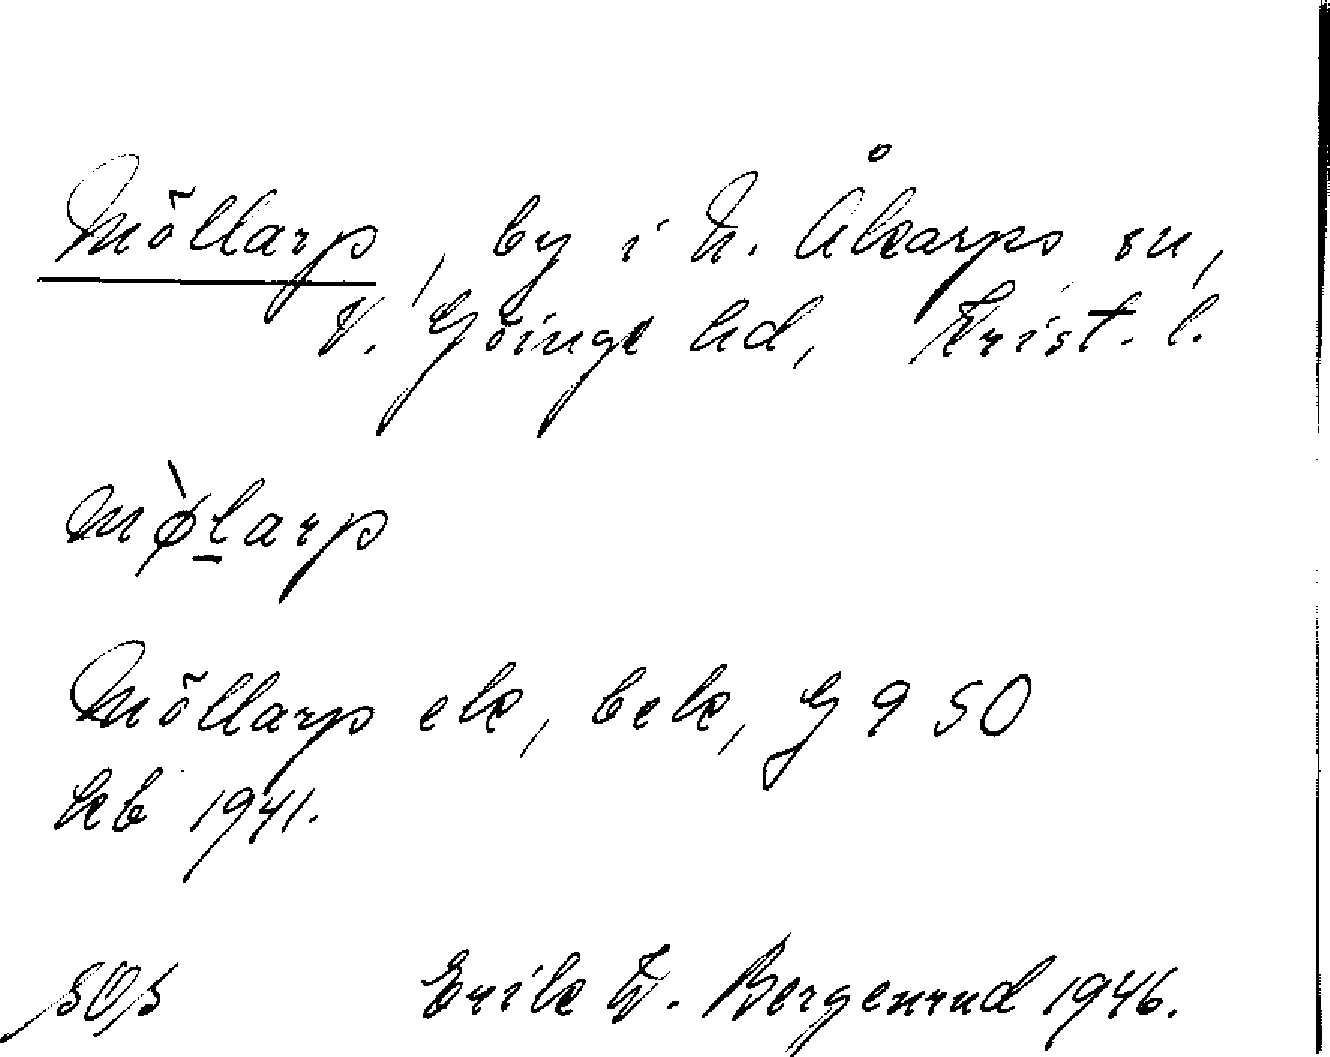 Möllarp, by i N. Åkarps sn,
V. Göinge hd, Krist. l.
mø̀larp
Möllarp ek, bek, G 9 50
kb 1941.
SOS Erik K. Bergenrud 1946.